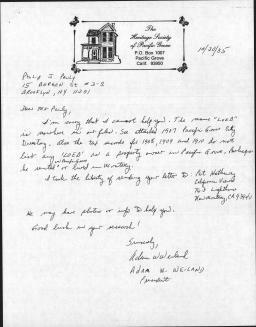 The
Heritage Society
of Pacific Grove
P.O. Box 1007
Pacific Grove
Calif. 93950
10/20/85
Philip J. Pauly
15 BERGEN St #2-R
BROOKLYN, NY 11201
Dear Mr Pauly,
I'm sorry that I cannot help you. The name "LOEB"
is nowhere in our files. See attached 1907 Pacific Grove City
Directory. Also the tax records for 1908, 1909 and 1910 do not
list any "LOEB" as a property owner in Pacific Grove. Perhaps
he rented or lived in Monterey.
I took the liberty of sending your letter to: Pat Hathaway
California Views
Lighthouse
Monterey, CA 93940
He may have photos or info to help you.
Good luck in your research!
Sincerely,
Adam Weiland
ADAM W. WEILAND
President